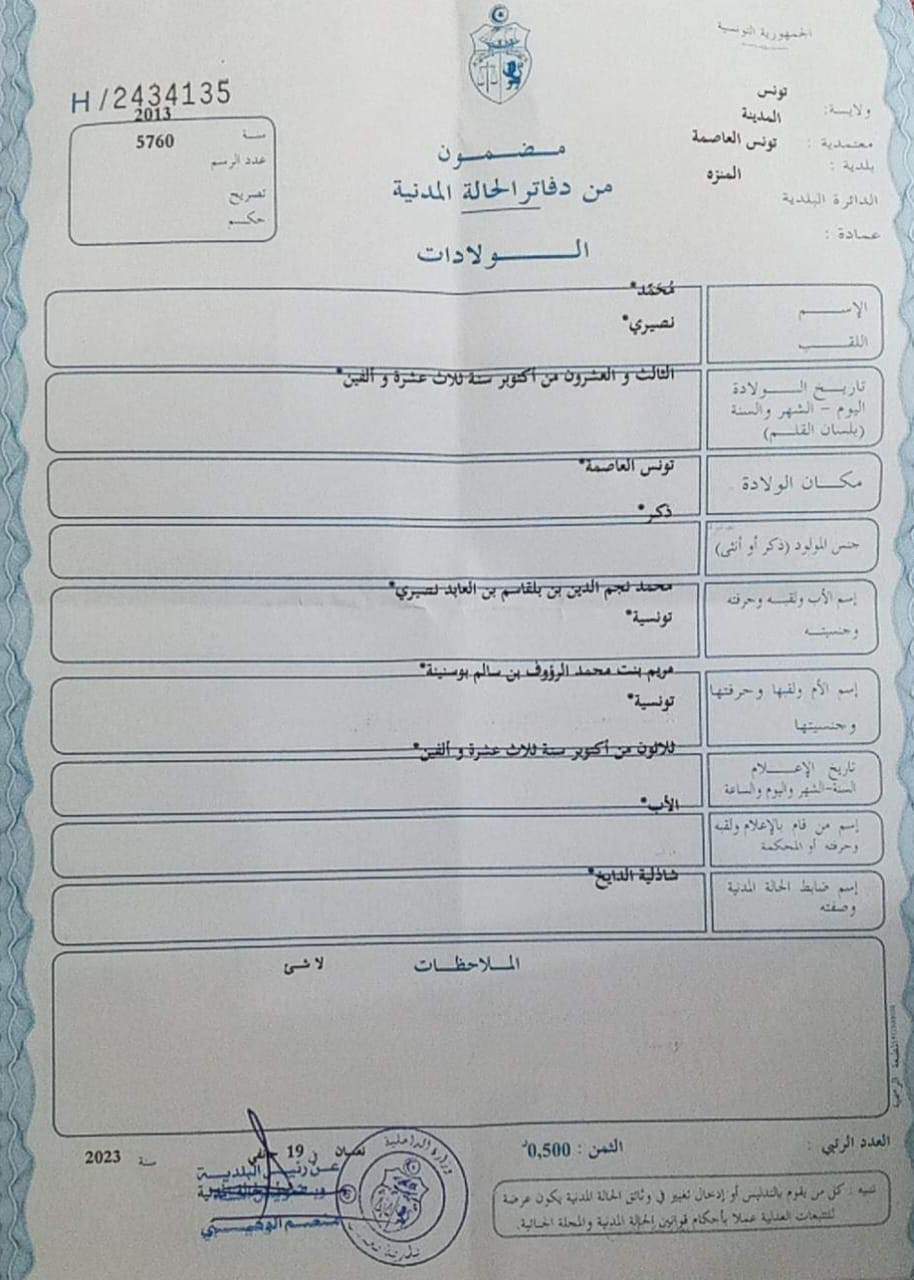 الجمهورية التونسية
H/2434135
ولاية: تونس
معتمدية : المدينة
بلدية : تونس العاصمة
الدائرة البلدية المنزه
عمادة :
سنة 2013
عدد الرسم 5760
تصريح
حكم
مضمون
من دفاتر الحالة المدنية
الولادات
الإسم مُحَمّد*
اللقب نصيري*
تاريخ الولادة
اليوم - الشهر والسنة
(بلسان القلم)
الثالث و العشرون من أكتوبر سنة ثلاث عشرة و ألفين*
مكان الولادة تونس العاصمة*
جنس المولود (ذكر أو أنثى) ذكر*
إسم الأب ولقبه وحرفته
وجنسيته
محمد نجم الدين بن بلقاسم بن العابد نصيري*
تونسية*
إسم الأم ولقبها وحرفتها
وجنسيتها
مريم بنت محمد الرؤوف بن سالم بوسنينة*
تونسية*
تاريخ الإعلام
السنة-الشهر واليوم والساعة
ثلاثون من أكتوبر سنة ثلاث عشرة و ألفين*
إسم من قام بالإعلام ولقبه
وحرفته أو المحكمة
الأب*
إسم ضابط الحالة المدنية
وصفته
شاذلية الدايخ*
الملاحظات لا شئ
العدد الرتبي :
الثمن : 0,500د
في 19 جانفي سنة 2023
عن رئيس البلدية
وزارة الداخلية
تنبيه : كل من يقوم بالتدليس أو إدخال تغيير في وثائق الحالة المدنية يكون عرضة
للتتبعات العدلية عملا بأحكام قوانين الحالة المدنية والمجلة الجنائية.